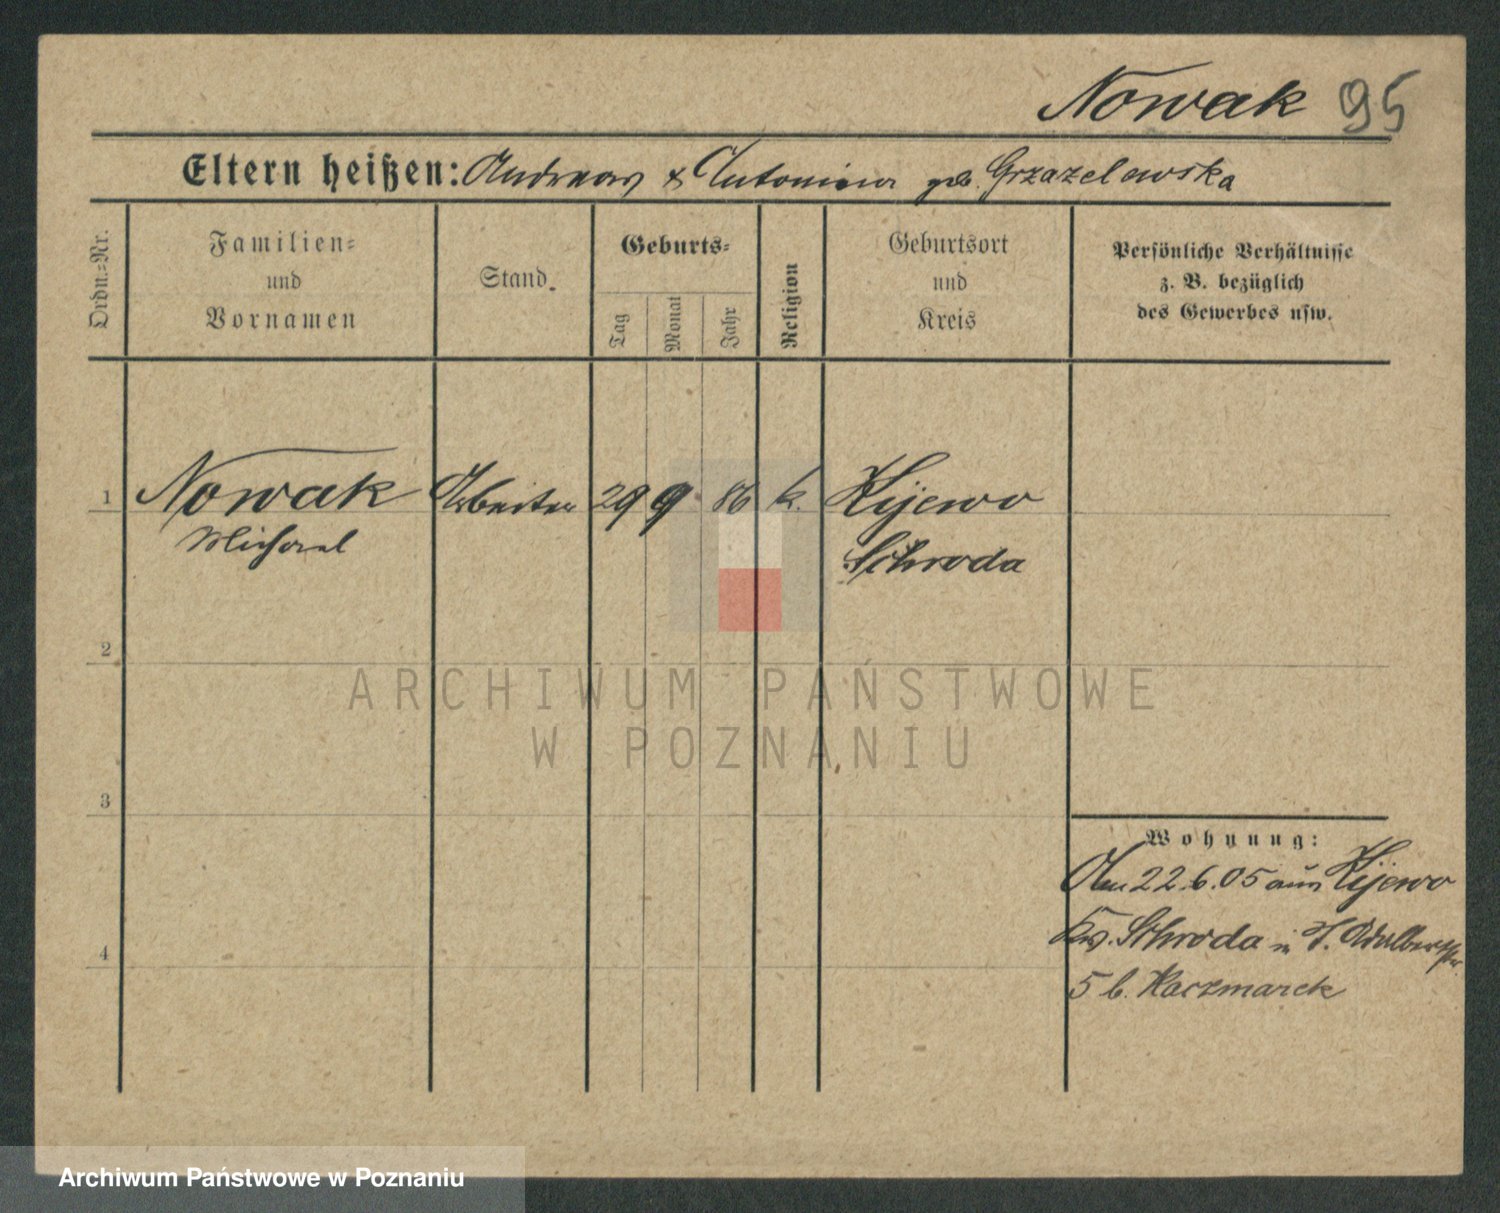 Nowak 95
Eltern heißen: Andreas & Antonina geb. Grzazelewska
Ordn.=Nr.
Familien=
und
Vornamen
Stand.
Geburts=
Tag
Monat
Jahr
Religion
Geburtsort
und
Kreis
Persönliche Verhältnisse
z. B. bezüglich
des Gewerbes usw.
1 Nowak Arbeiter 29 9 86 k. Kijewo
Michael Schroda
2
ARCHIWUM PAŃSTWOWE
W POZNANIU
3
Wohnung:
Am 22.6.05 aus Kijewo
Krs. Schroda in
4
5 b. Kaczmarek
Archiwum Państwowe w Poznaniu